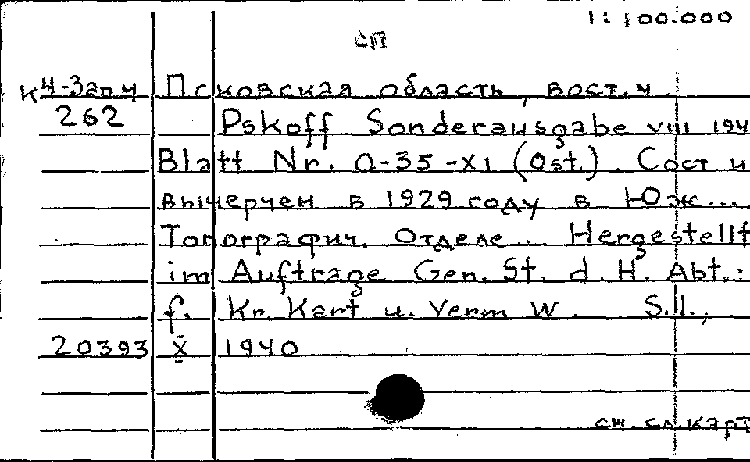 1:100.000
СП
К Ч-Зап.Ч Псковская область, вост.ч.
262 Pskoff Sonderausgabe VIII 194
Blatt Nr. O-35-XI (Ost.). Сост и
вычерчен в 1929 году в Юж...
Топографич. Отделе... Hergestellt
im Auftrage Gen. St. d. H. Abt.:
f. Kr. Kart u. Verm W. S.l.,
20393 X 1940
см. сл. карт